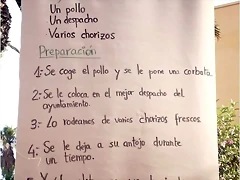 Un pollo
Un despacho
Varios chorizos
Preparación
1: Se coge el pollo y se le pone una corbata.
2: Se le coloca en el mejor despacho del
ayuntamiento.
3: Lo rodeamos de varios chorizos frescos
4: Se le deja a su antojo durante
un tiempo.